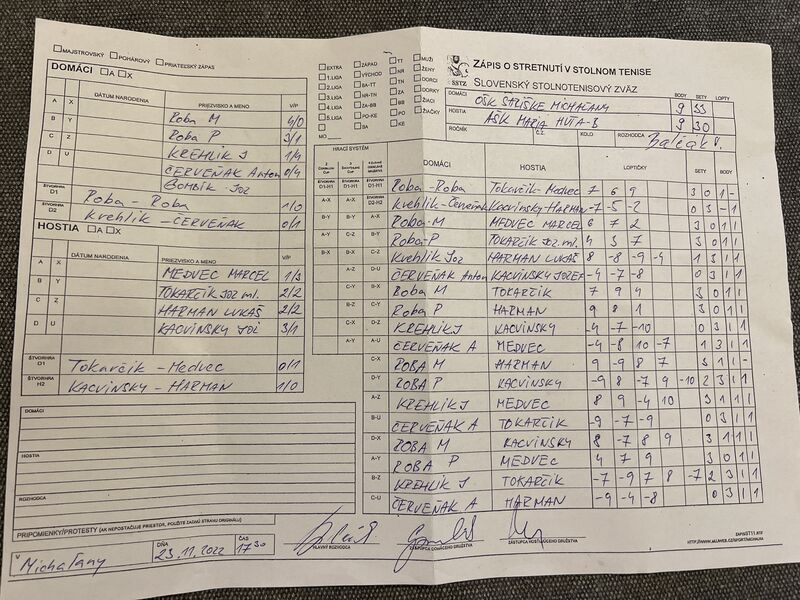 MAJSTROVSKÝ POHÁROVÝ PRIATEĽSKÝ ZÁPAS
DOMÁCI A X
DÁTUM NARODENIA PRIEZVISKO A MENO V/P
A X Roba M 4/0
B Y Roba P 3/1
C Z KREHLIK J 1/4
D U ČERVEŇAK Anton 0/4
BOMBIK Joz
ŠTVORHRA D1 Roba - Roba 1/0
D2 Krehlik - ČERVEŇAK 0/1
HOSTIA A X
DÁTUM NARODENIA PRIEZVISKO A MENO V/P
A X MEDVEC MARCEL 1/3
B Y TOKARČIK Joz ml. 2/2
C Z HARMAN LUKÁŠ 2/2
D U KACVINSKY JOZ 3/1
ŠTVORHRA D1 Tokarčik - Medvec 0/1
ŠTVORHRA H2 KACVINSKY - HARMAN 1/0
DOMÁCI
HOSTIA
ROZHODCA
PRIPOMIENKY/PROTESTY (AK NEPOSTAČUJE PRIESTOR, POUŽITE ZADNÚ STRANU ORIGINÁLU)
V Michaľany
DŇA 23.11.2022
ČAS 17 30
HLAVNÝ ROZHODCA
ZÁSTUPCA DOMÁCEHO DRUŽSTVA
ZÁSTUPCA HOSŤUJÚCEHO DRUŽSTVA
EXTRA ZÁPAD TT MUŽI
1.LIGA VÝCHOD NR ŽENY
2.LIGA BA-TT TN DORCI
3.LIGA NR-TN ZA DORKY
4.LIGA ZA-BB BB ŽIACI
5.LIGA PO-KE PO ŽIAČKY
BA KE
MO
SSTZ
ZÁPIS O STRETNUTÍ V STOLNOM TENISE
SLOVENSKÝ STOLNOTENISOVÝ ZVÄZ
BODY SETY LOPTY
DOMÁCI OŠK MICHAĽANY 9 33
HOSTIA AŠK MARIA HUTA-B 9 30
ROČNÍK Č.Z. KOLO ROZHODCA
HRACÍ SYSTÉM
DOMÁCI HOSTIA LOPTIČKY SETY BODY
D1-H1 D1-H1 Roba - Roba Tokarčik - Medvec 7 6 9 3 0 1 -
A-X A-X D2-H2 Krehlik - Červeňak Kacvinsky - HARMAN -7 -5 -2 0 3 - 1
B-Y B-Y A-X Roba M MEDVEC MARCEL 6 7 2 3 0 1 1
A-Y C-Z B-Y Roba P TOKARČIK JOZ ml. 4 5 7 3 0 1 1
B-X B-X C-Z Krehlik Joz HARMAN LUKÁŠ 8 -8 -9 -4 1 3 1 1
A-Z D-U ČERVEŇAK Anton KACVINSKY JOZEF -4 -7 -8 0 3 1 1
C-Y B-X Roba M TOKARČIK 7 9 4 3 0 1 1
B-Z C-Y Roba P HARMAN 9 8 1 3 0 1 1
C-X D-Z KREHLIK J KACVINSKY -4 -7 -10 0 3 1 1
A-Y A-U ČERVEŇAK A MEDVEC -4 -8 10 -7 1 3 1 1
C-X ROBA M HARMAN 9 -9 8 7 3 1 1 -
D-Y ROBA P KACVINSKY -9 8 -7 9 -10 2 3 1 1
A-Z KREHLIK J MEDVEC 8 9 -4 10 3 1 1 1
B-U ČERVEŇAK A TOKARČIK -9 -7 -9 0 3 1 1
D-X ROBA M KACVINSKY 8 -7 8 9 3 1 1 1
A-Y ROBA P MEDVEC 4 7 9 3 0 1 1
B-Z KREHLIK J TOKARČIK -7 -9 7 8 -7 2 3 1 1
C-U ČERVEŇAK A HARMAN -9 -4 -8 0 3 1 1
ZAPISST11.RTF